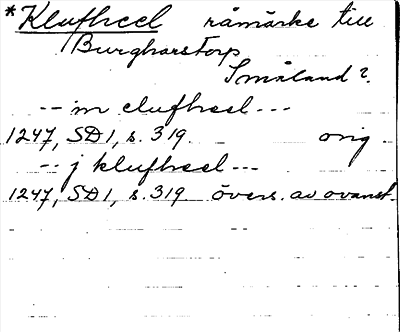 *Klufheel råmärke till
Burgharstorp
Småland?
-- in clufheel ---
1247, SD1, s. 319 orig
-- j klufheel ---
1247, SD1, s. 319 övers. av ovanst.